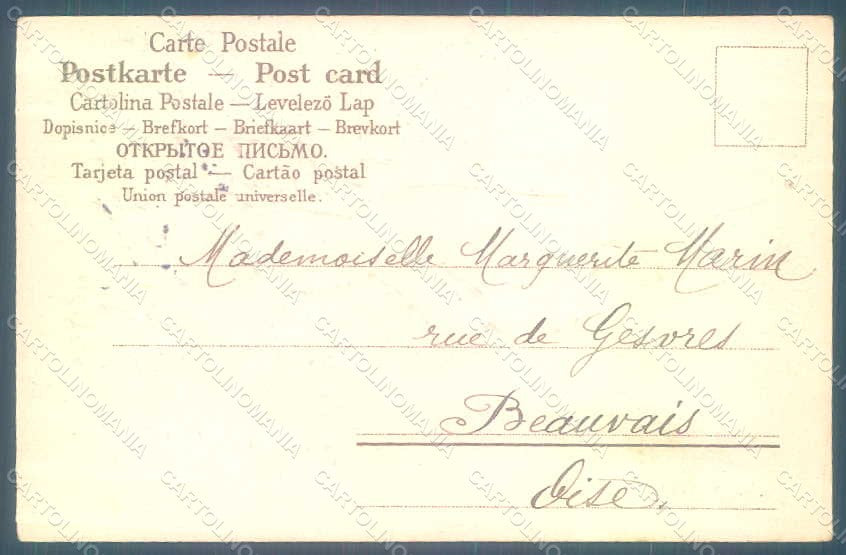 Carte Postale
Postkarte — Post card
Cartolina Postale — Levelező Lap
Dopisnice — Brefkort — Briefkaart — Brevkort
ОТКРЫТОЕ ПИСЬМО.
Tarjeta postal — Cartão postal
Union postale universelle.
Mademoiselle Marguerite Marin
rue de Gesvres
Beauvais
Oise.
CARTOLINOMANIA